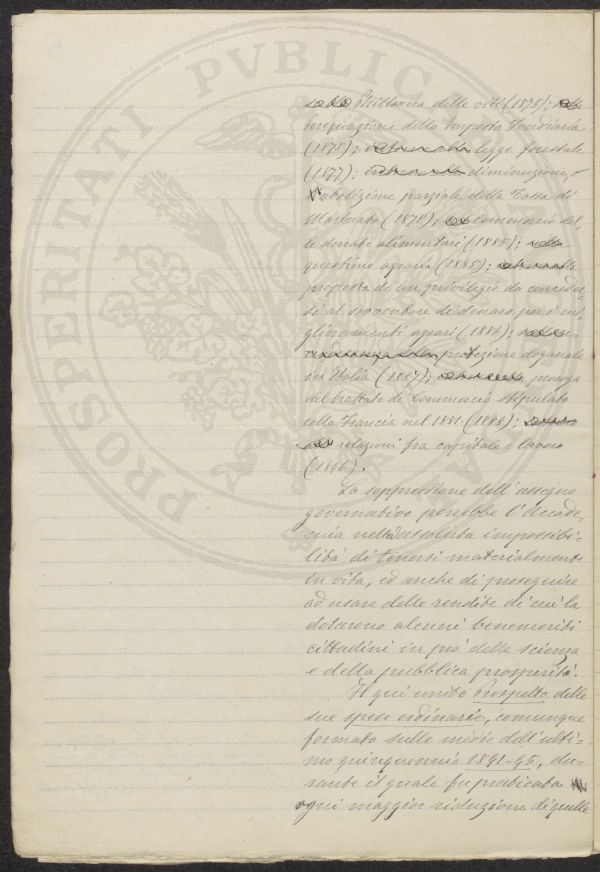 PROSPERITATI PVBLICAE
Fillossera delle viti (1875);
Perequazione della Imposta Fondiaria
(1875); legge forestale
(1877); diminuzione, o
abolizione parziale della Tassa di
Macinato (1878); commercio del-
le derrate alimentari (1885);
questione agraria (1885);
proposta di un privilegio da conceder-
si al sovventore di dinaro per i mi-
glioramenti agrari (1886);
protezione doganale
in Italia (1887); proroga
del trattato di Commercio stipulato
colla Francia nel 1881 (1888);
relazioni fra capitale e lavoro
(1896).
La soppressione dell'assegno
governativo porrebbe l'Accade-
mia nell'assoluta impossibi-
lità di tenersi materialmente
in vita, ed anche di proseguire
ad usare delle rendite di cui la
dotarono alcuni benemeriti
cittadini in prò della scienza
e della pubblica prosperità.
Il qui unito Prospetto delle
sue spese ordinarie, comunque
formato sulle medie dell'ulti-
mo quinquennio 1891-95, du-
rante il quale fu praticata
ogni maggior riduzione di quelle